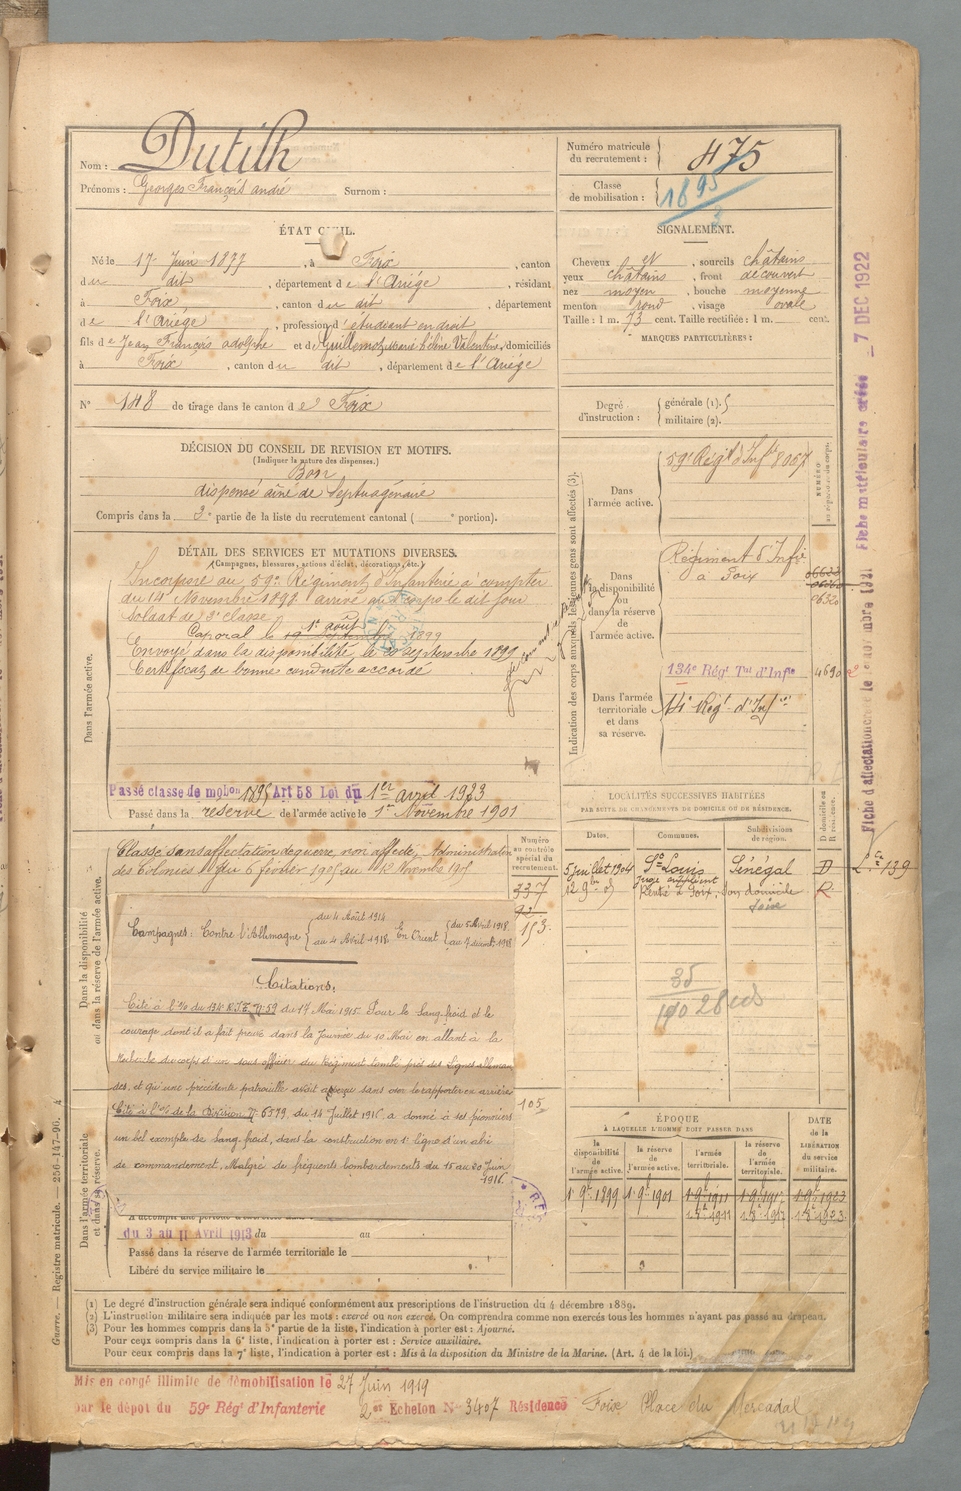 Nom : Dutilh
Prénoms : Georges François andré Surnom :
ÉTAT CIVIL.
Né le 17 Juin 1877, à Foix, canton
du dit, département de l'Ariége, résidant
à Foix, canton du dit, département
de l'Ariége, profession d'étudiant en droit
fils de Jean François adolphe et de Guillemot Marie hélène Valentine, domiciliés
à Foix, canton du dit, département de l'Ariége
N° 148 de tirage dans le canton de Foix
DÉCISION DU CONSEIL DE REVISION ET MOTIFS.
(Indiquer la nature des dispenses.)
Bon
dispensé aîné de Septuagénaire
Compris dans la 3e partie de la liste du recrutement cantonal ( e portion).
DÉTAIL DES SERVICES ET MUTATIONS DIVERSES.
(Campagnes, blessures, actions d'éclat, décorations, etc.)
Dans l'armée active.
Incorporé au 59e Régiment d'Infanterie à compter
du 14 Novembre 1898 arrivé au corps le dit jour
Soldat de 2e classe
1er août
Caporal le 19 Septembre 1899
Envoyé dans la disponibilité le 20 septembre 1899
Certificat de bonne conduite accordé
Passé classe de mobon 1895 Art 58 Loi du 1er avril 1923
Passé dans la réserve de l'armée active le 1er Novembre 1901
Dans la disponibilité
ou dans la réserve de l'armée active.
Classe sans affectation de guerre, non affecté, Administration
des Colonies du 6 février 1905 au 12 Novembre 1905
Campagnes : Contre l'Allemagne { du 4 Août 1914 au 4 Avril 1918 En Orient { du 5 Avril 1918
Citations,
Cité à l'/o du 134e R.I.T. N° 59 du 17 Mai 1915. Pour le Sang-froid et le
courage dont il a fait preuve dans la Journée du 10 Mai en allant à la
Recherche du corps d'un sous officier du Régiment tombé près des Lignes alleman
des, et qu'une précédente patrouille avait aperçu sans oser le rapporter en arrière
Cité à l'/o de la Division N° 6579, du 14 Juillet 1916, a donné à ses pionniers
un bel exemple de sang froid, dans la construction en 1e ligne d'un abri
de commandement, Malgré de fréquents bombardements du 15 au 20 Juin
1916.
Dans l'armée territoriale
et dans sa réserve.
du 3 au 11 Avril 1913 du au
Passé dans la réserve de l'armée territoriale le
Libéré du service militaire le
Numéro
au contrôle
spécial du
recrutement.
337
92
153
105
Numéro matricule
du recrutement : 475
Classe
de mobilisation : 1895
SIGNALEMENT.
Cheveux et, sourcils châtains
yeux châtains, front découvert
nez moyen, bouche moyenne
menton rond, visage ovale
Taille : 1 m. 73 cent. Taille rectifiée : 1 m. cent.
MARQUES PARTICULIÈRES :
Degré
d'instruction : { générale (1).
militaire (2).
Indication des corps auxquels les jeunes gens sont affectés (3).
NUMÉRO
au répertoire du corps.
Dans
l'armée active.
59e Régt d'Infie 8067
Dans
la disponibilité
ou
dans la réserve
de
l'armée active.
Régiment d'Infie
à Foix
134e Régt Tal d'Infie 4690
Dans l'armée
territoriale
et dans
sa réserve.
14e Régt d'Infie
LOCALITÉS SUCCESSIVES HABITÉES
PAR SUITE DE CHANGEMENTS DE DOMICILE OU DE RÉSIDENCE.
Dates. Communes. Subdivisions
de région. D domicile ou
R résidence.
5 juillet 1904 St Louis Sénégal D
Juge suppléant
12 9bre 05 Rentré à Foix, son domicile R
Foix
L. Ex 139
35
ÉPOQUE
À LAQUELLE L'HOMME DOIT PASSER DANS
la
disponibilité
de
l'armée active.
la réserve
de
l'armée active.
l'armée
territoriale.
la réserve
de
l'armée
territoriale.
DATE
de la
LIBÉRATION
du service
militaire.
1 9e 1899 1 9e 1901 1 9e 1911 1 9e 1917 1 9e 1923
1 8e 1911 1 8e 1917 1 8e 1923
Fiche matriculaire créée 7 DEC 1922
Guerre. — Registre matricule. — 256-147-96. 4
(1) Le degré d'instruction générale sera indiqué conformément aux prescriptions de l'instruction du 4 décembre 1889.
(2) L'instruction militaire sera indiquée par les mots : exercé ou non exercé. On comprendra comme non exercés tous les hommes n'ayant pas passé au drapeau.
(3) Pour les hommes compris dans la 5e partie de la liste, l'indication à porter est : Ajourné.
Pour ceux compris dans la 6e liste, l'indication à porter est : Service auxiliaire.
Pour ceux compris dans la 7e liste, l'indication à porter est : Mis à la disposition du Ministre de la Marine. (Art. 4 de la loi.)
Mis en congé illimité de démobilisation le 27 Juin 1919
par le dépot du 59e Régt d'Infanterie 2e Echelon N° 3407 Résidence Foix Place du Mercadal